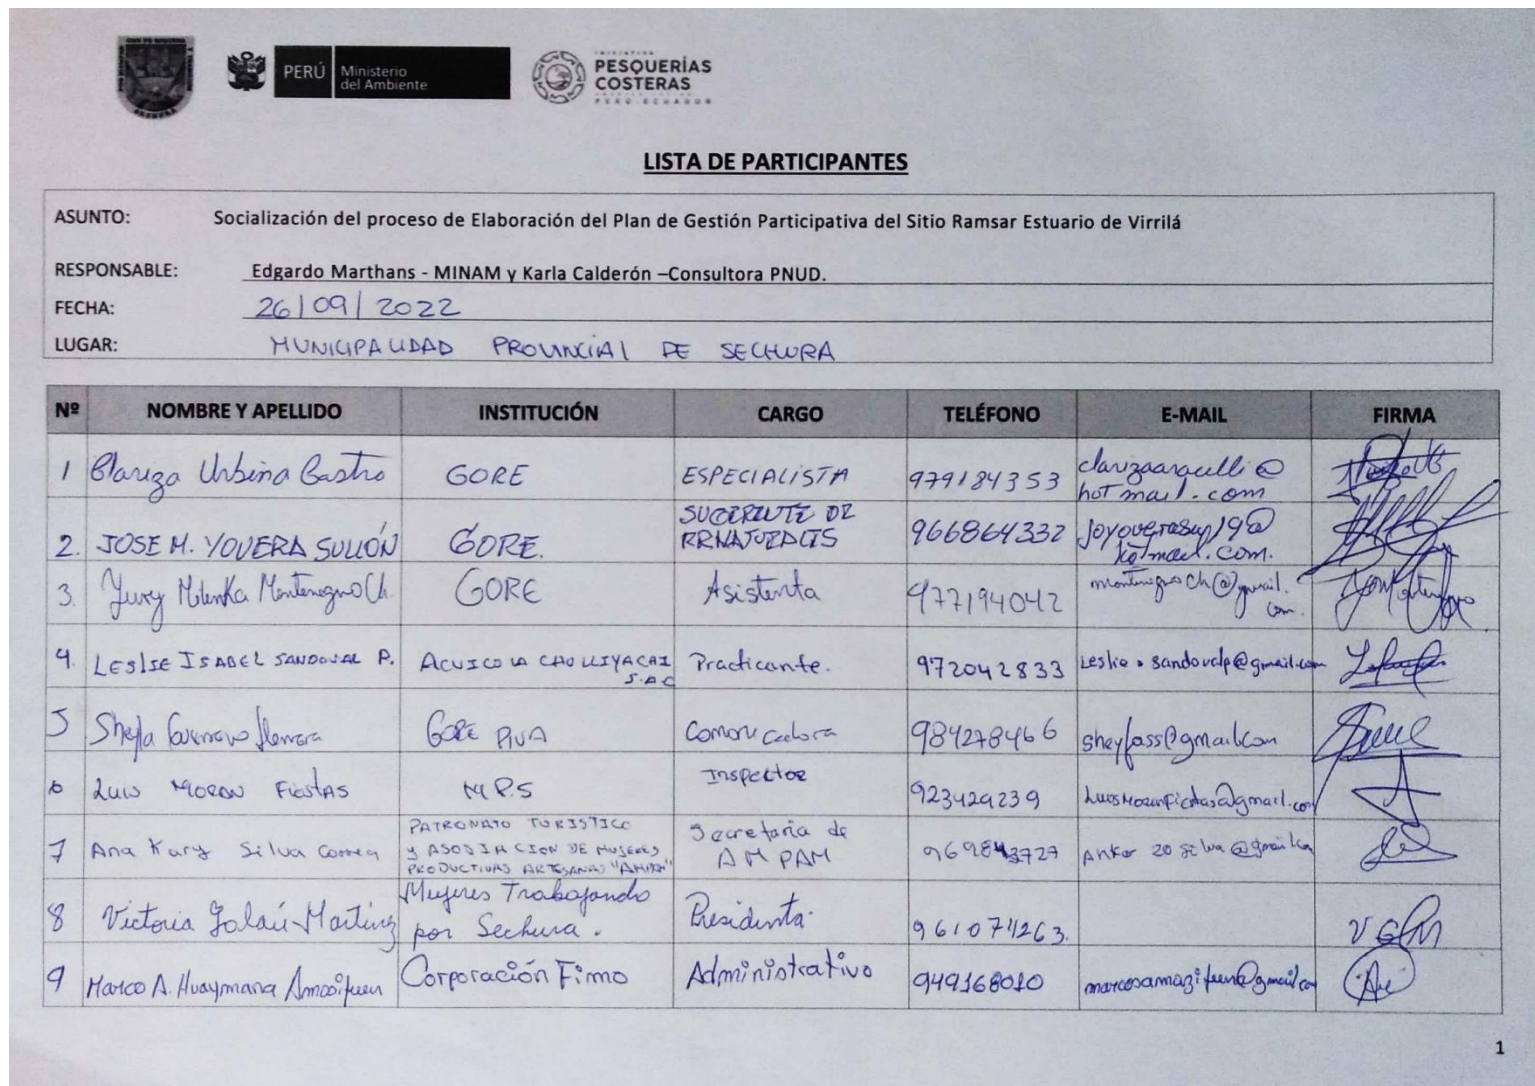 PERÚ Ministerio del Ambiente
PESQUERÍAS COSTERAS
PERÚ-ECUADOR
LISTA DE PARTICIPANTES
ASUNTO: Socialización del proceso de Elaboración del Plan de Gestión Participativa del Sitio Ramsar Estuario de Virrilá
RESPONSABLE: Edgardo Marthans - MINAM y Karla Calderón –Consultora PNUD.
FECHA: 26/09/2022
LUGAR: MUNICIPALIDAD PROVINCIAL DE SECHURA
Nº NOMBRE Y APELLIDO INSTITUCIÓN CARGO TELÉFONO E-MAIL FIRMA
1 Clariza Urbina Castro GORE ESPECIALISTA 979184353 clarizaaracelli@
hotmail.com
2. JOSE M. YOVERA SULLÓN GORE. 966864332
3. Yury Milenka Montenegro Ch. GORE Asistenta 977194042 montenegroch@gmail.
com.
4. LESLIE ISABEL SANDOVAL P. ACUICOLA S.A.C Practicante. 972042833 Leslie.sandovalp@gmail.com
5 Sheyla GORE Comunicadora 984278466
6 Luis MORAN FIESTAS M.P.S Inspector 923429239
7 Ana Kary Silva Correa PATRONATO TURISTICO
Y ASOSIACION DE MUJERES
PRODUCTIVAS ARTESANAS "AMPAM"
Secretaria de
AMPAM
8 Victoria Martinez Mujeres Trabajando
por Sechura. Presidenta.
9 Marco A. Huaymana Corporación Firmo Administrativo 949168010
1